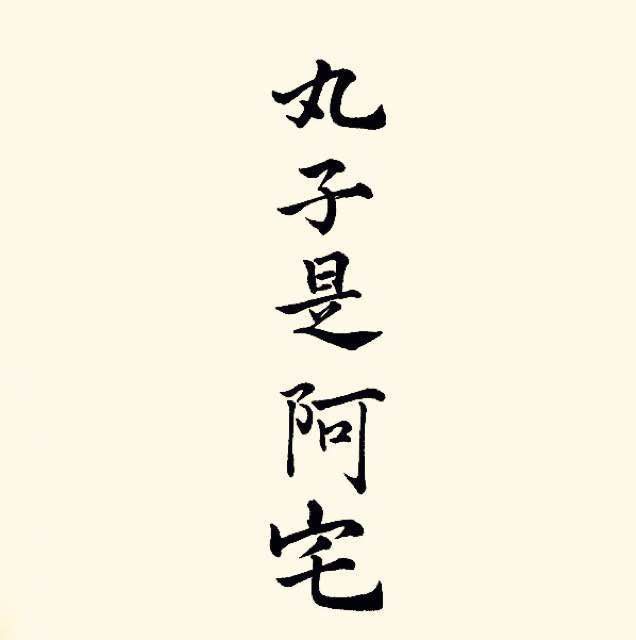 丸子是阿宅